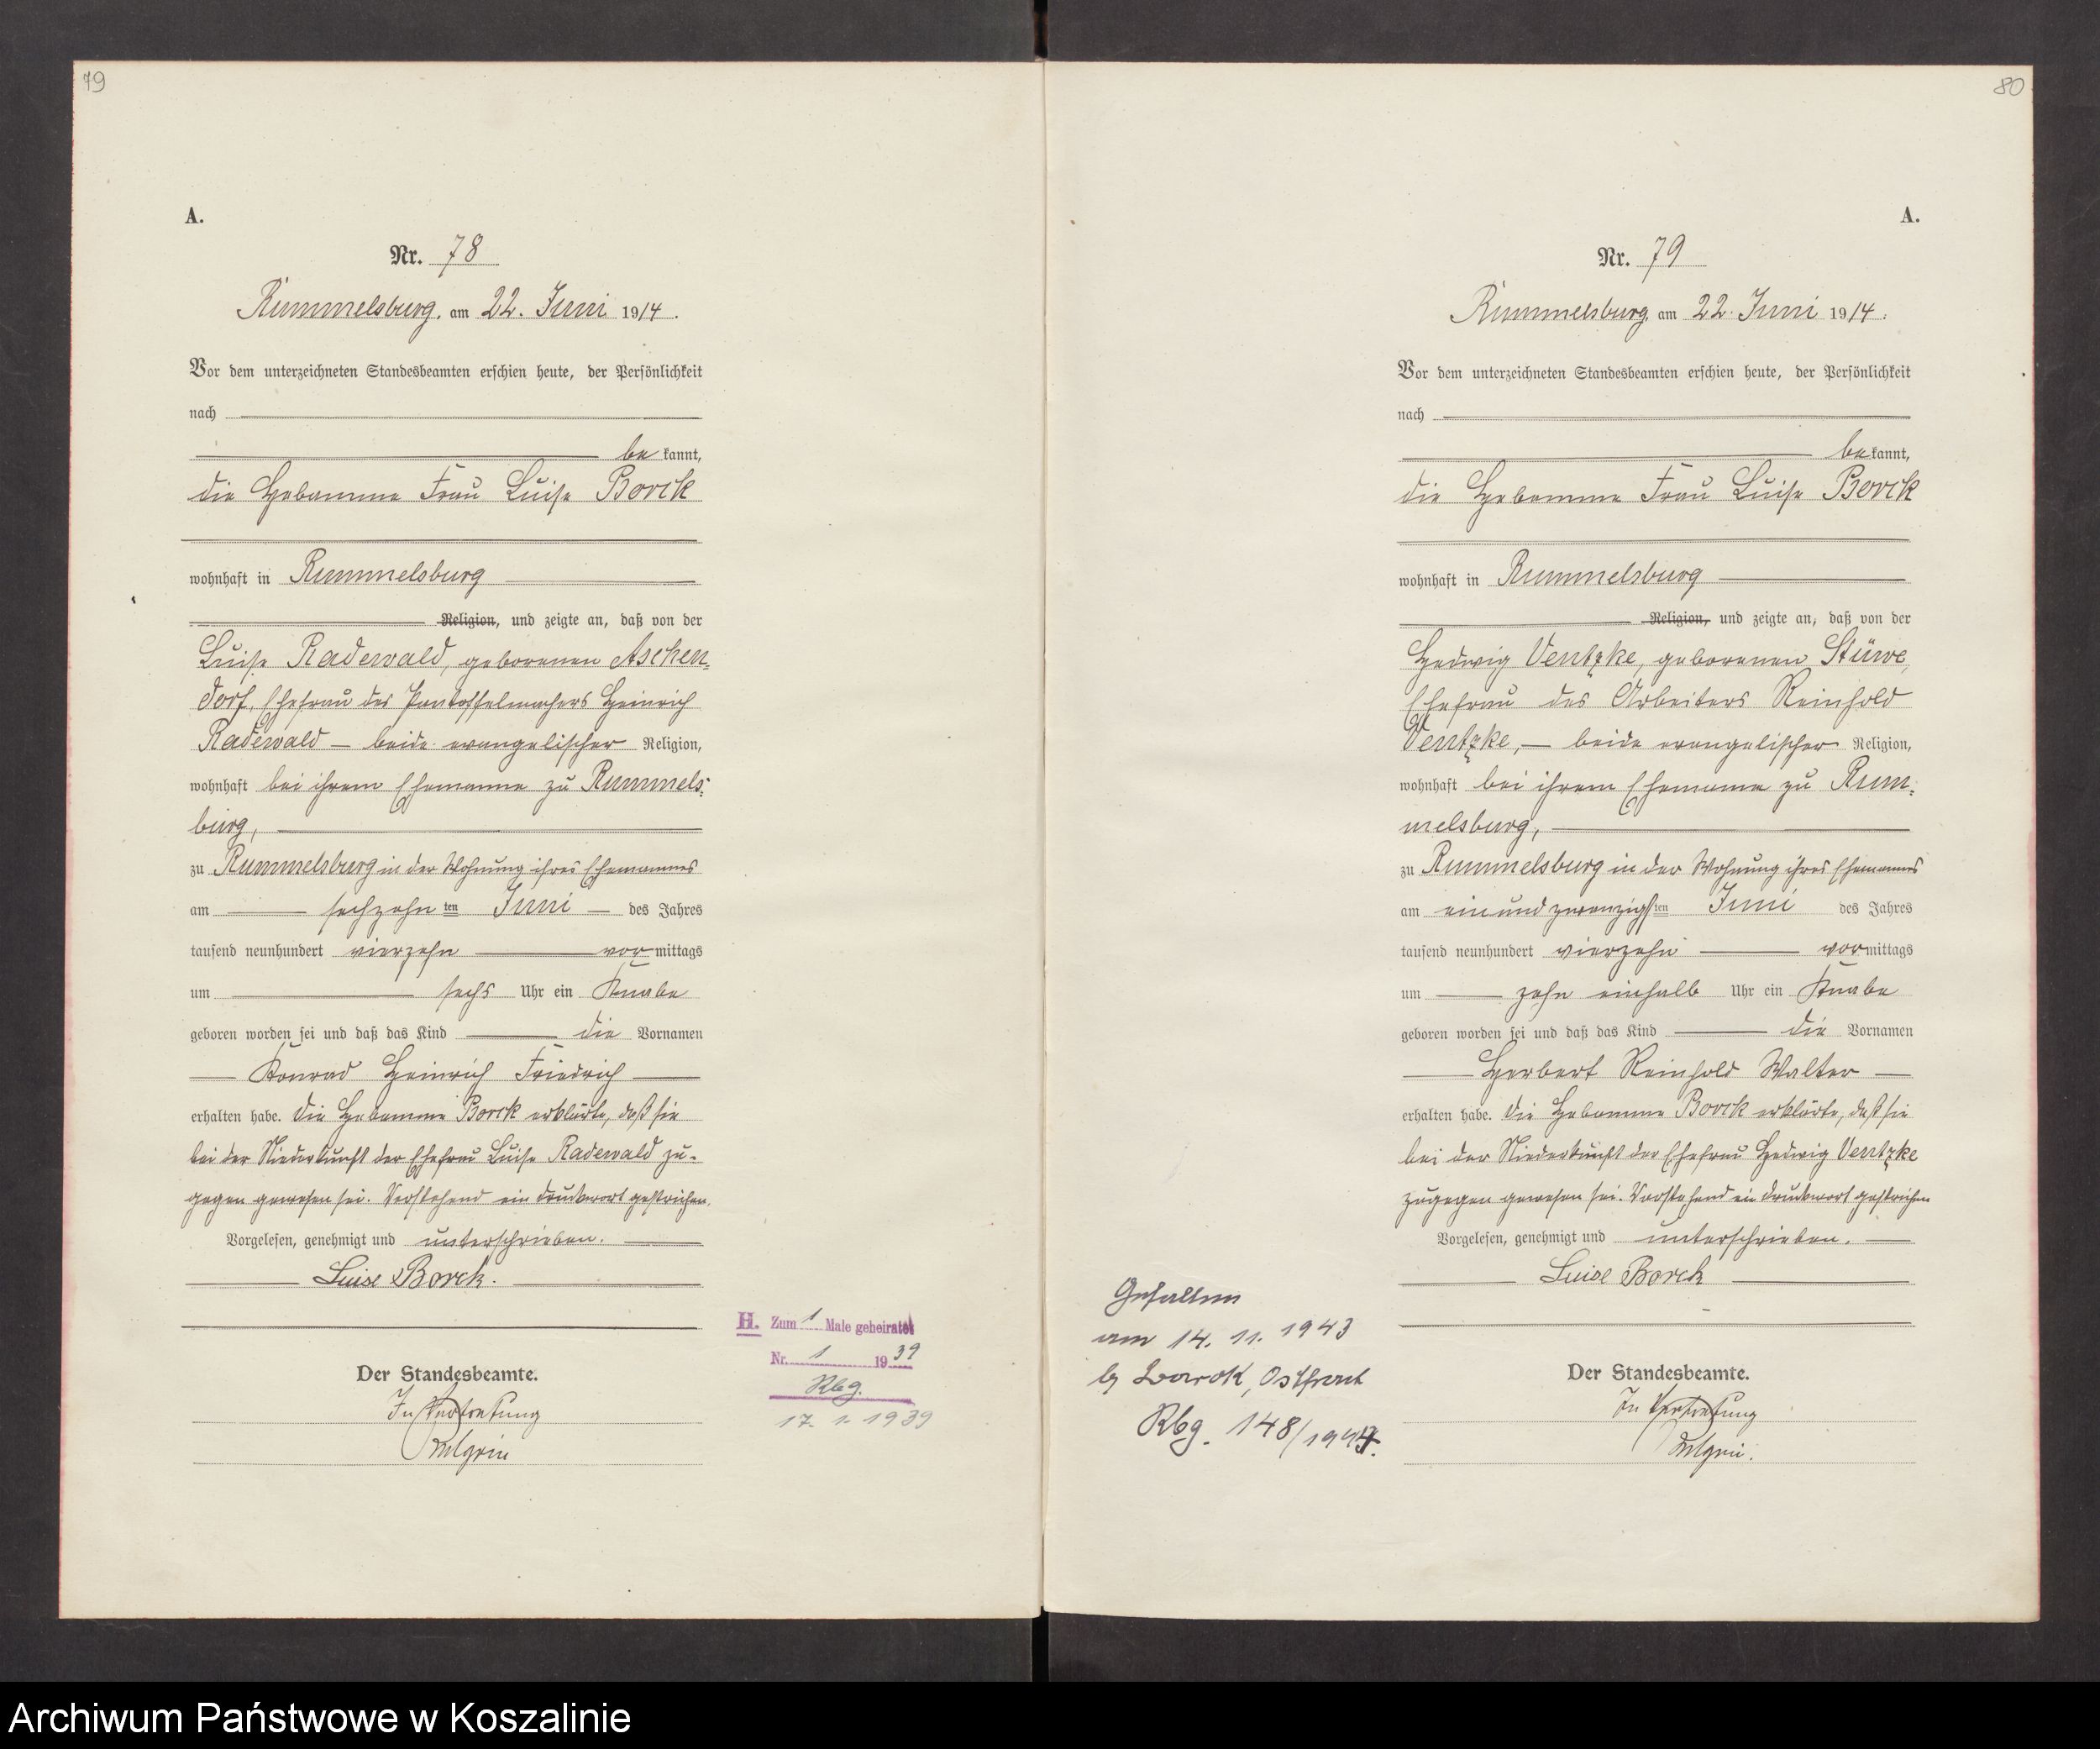 79
A.
Nr. 78
Rummelsburg, am 22. Juni 1914.
Vor dem unterzeichneten Standesbeamten erschien heute, der Persönlichkeit
nach
be kannt,
die Hebamme Frau Luise Borck
wohnhaft in Rummelsburg
Religion, und zeigte an, daß von der
Luise Radewald, geborenen Aschen-
dorf, Ehefrau des Pantoffelmachers Heinrich
Radewald — beide evangelischer Religion,
wohnhaft bei ihrem Ehemanne zu Rummels-
burg,
zu Rummelsburg in der Wohnung ihres Ehemannes
am sechzehn ten Juni des Jahres
tausend neunhundert vierzehn vor mittags
um sechs Uhr ein Knabe
geboren worden sei und daß das Kind die Vornamen
Konrad Heinrich Friedrich
erhalten habe. Die Hebamme Borck erklärte, daß sie
bei der Niederkunft der Ehefrau Luise Radewald zu-
gegen gewesen sei. Vorstehend ein Druckwort gestrichen.
Vorgelesen, genehmigt und unterschrieben.
Luise Borck.
Der Standesbeamte.
In Vertretung
H. Zum 1 Male geheiratet
Nr. 1 1939
Rbg.
17. 1. 1939
80
A.
Nr. 79
Rummelsburg, am 22. Juni 1914.
Vor dem unterzeichneten Standesbeamten erschien heute, der Persönlichkeit
nach
be kannt,
die Hebamme Frau Luise Borck
wohnhaft in Rummelsburg
Religion, und zeigte an, daß von der
Hedwig Ventzke, geborenen Stüwe,
Ehefrau des Arbeiters Reinhold
Ventzke, — beide evangelischer Religion,
wohnhaft bei ihrem Ehemanne zu Rum-
melsburg,
zu Rummelsburg in der Wohnung ihres Ehemannes
am einundzwanzigsten Juni des Jahres
tausend neunhundert vierzehn vormittags
um zehn einhalb Uhr ein Knabe
geboren worden sei und daß das Kind die Vornamen
Herbert Reinhold Walter
erhalten habe. Die Hebamme Borck erklärte, daß sie
bei der Niederkunft der Ehefrau Hedwig Ventzke
zugegen gewesen sei. Vorstehend ein Druckwort gestrichen
Vorgelesen, genehmigt und unterschrieben.
Luise Borck
Der Standesbeamte.
In Vertretung
Gefallen
am 14. 11. 1943
Ostfront
Rbg. 148/1944.
Archiwum Państwowe w Koszalinie